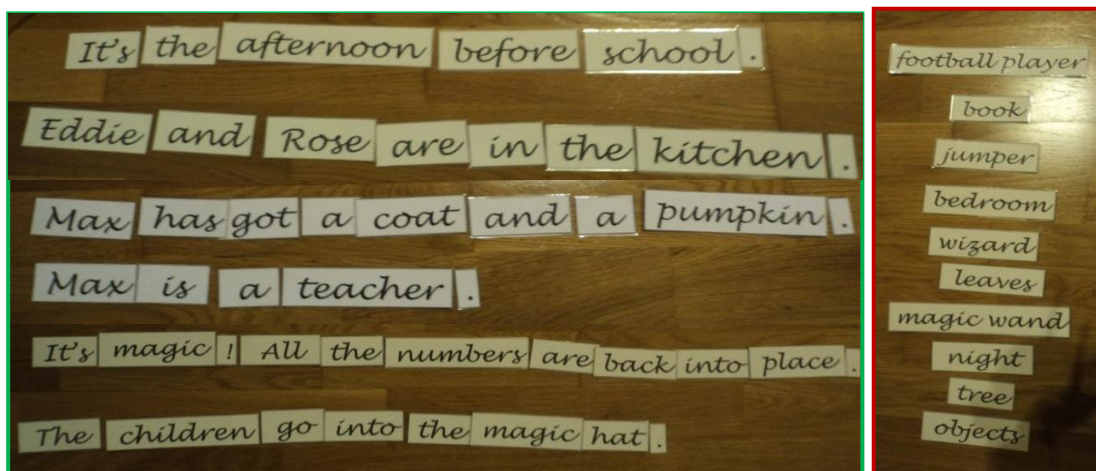 It's the afternoon before school.
Eddie and Rose are in the kitchen.
Max has got a coat and a pumpkin.
Max is a teacher.
It's magic! All the numbers are back into place.
The children go into the magic hat.
football player
book
jumper
bedroom
wizard
leaves
magic wand
night
tree
objects